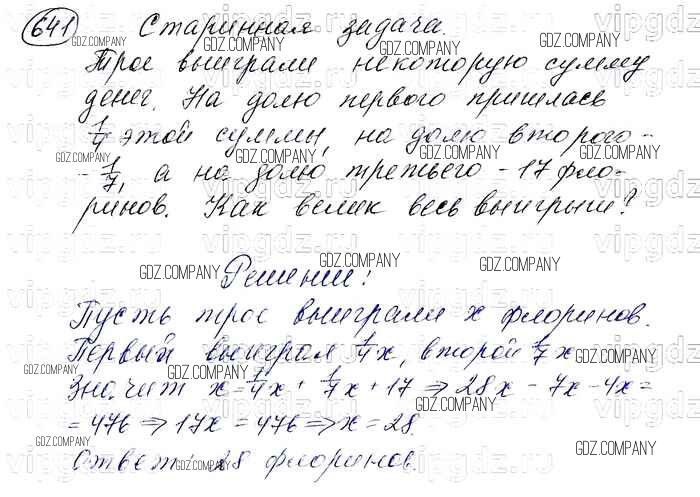 641 Старинная задача.
Трое выиграли некоторую сумму
денег. На долю первого пришлась
1/4 этой суммы, на долю второго -
- 1/7, а на долю третьего - 17 фло-
ринов. Как велик весь выигрыш?
Решение:
Пусть трое выиграли x флоринов.
Первый выиграл 1/4x, второй 1/7x
Значит x = 1/4x + 1/7x + 17 ⇒ 28x - 7x - 4x =
= 476 ⇒ 17x = 476 ⇒ x = 28.
Ответ: 28 флоринов.
GDZ.COMPANY
vipgdz.ru